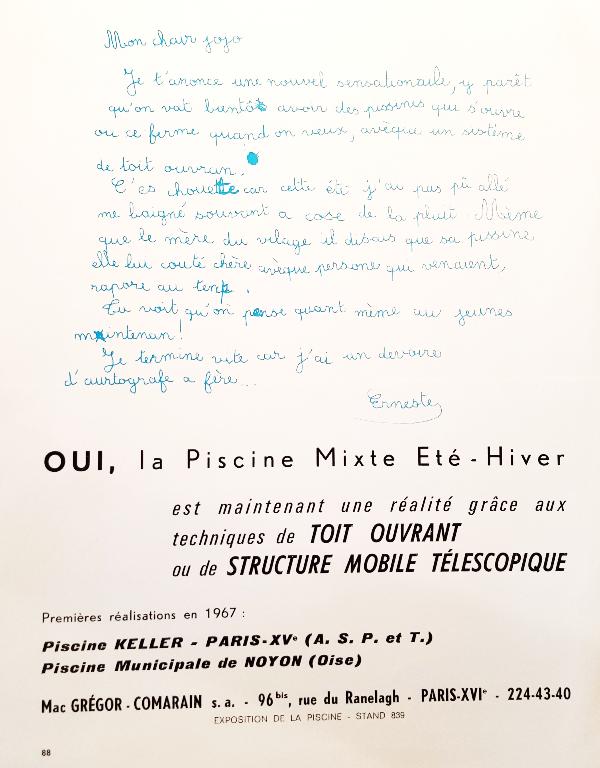 Mon chair jojo
Je t'anonce une nouvel sensationaile, y parêt
qu'on vat bientôt avoir des pissines que s'ouvre
ou ce ferme quand on veux, avèque un sistème
de toit ouvran.
C'es chouette car cette été j'ai pas pû allé
me baigné souvant a cose de la pluit. Même
que le mère du vilage il disais que sa pissine
elle lui couté chère avèque persone qui venaient,
rapore au temp.
Tu voit qu'on pense quant même au jeunes
maintenun!
Je termine vite car j'ai un devoire
d'aurtografe a fère...
Erneste
OUI, la Piscine Mixte Eté - Hiver
est maintenant une réalité grâce aux
techniques de TOIT OUVRANT
ou de STRUCTURE MOBILE TÉLESCOPIQUE
Premières réalisations en 1967 :
Piscine KELLER - PARIS-XVe (A. S. P. et T.)
Piscine Municipale de NOYON (Oise)
Mac GRÉGOR - COMARAIN s. a. - 96 bis, rue du Ranelagh - PARIS-XVIe - 224-43-40
EXPOSITION DE LA PISCINE - STAND 839
88